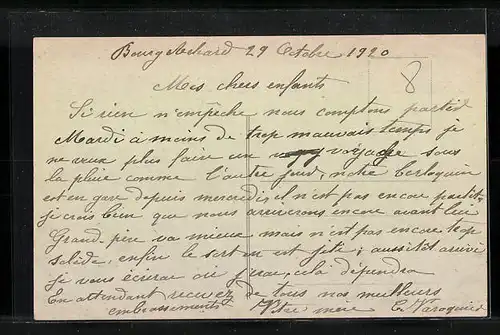 Bourg Achard 29 Octobre 1920
8
Mes chers enfants
Si rien n'empêche nous comptons partir
Mardi à moins de trop mauvais temps je
ne veux plus faire un voyage sous
la pluie comme l'autre jour, notre berloquin
est en gare depuis mercredi, il n'est pas encore parti
je crois bien que nous arriverons encore avant lui
Grand père va mieux mais n'est pas encore trop
solide, enfin le sort en est jeté; aussitôt arrivé
je vous écrirai ou j'irai, cela dépendra
En attendant recevez de tous nos meilleurs
embrassements Votre mère